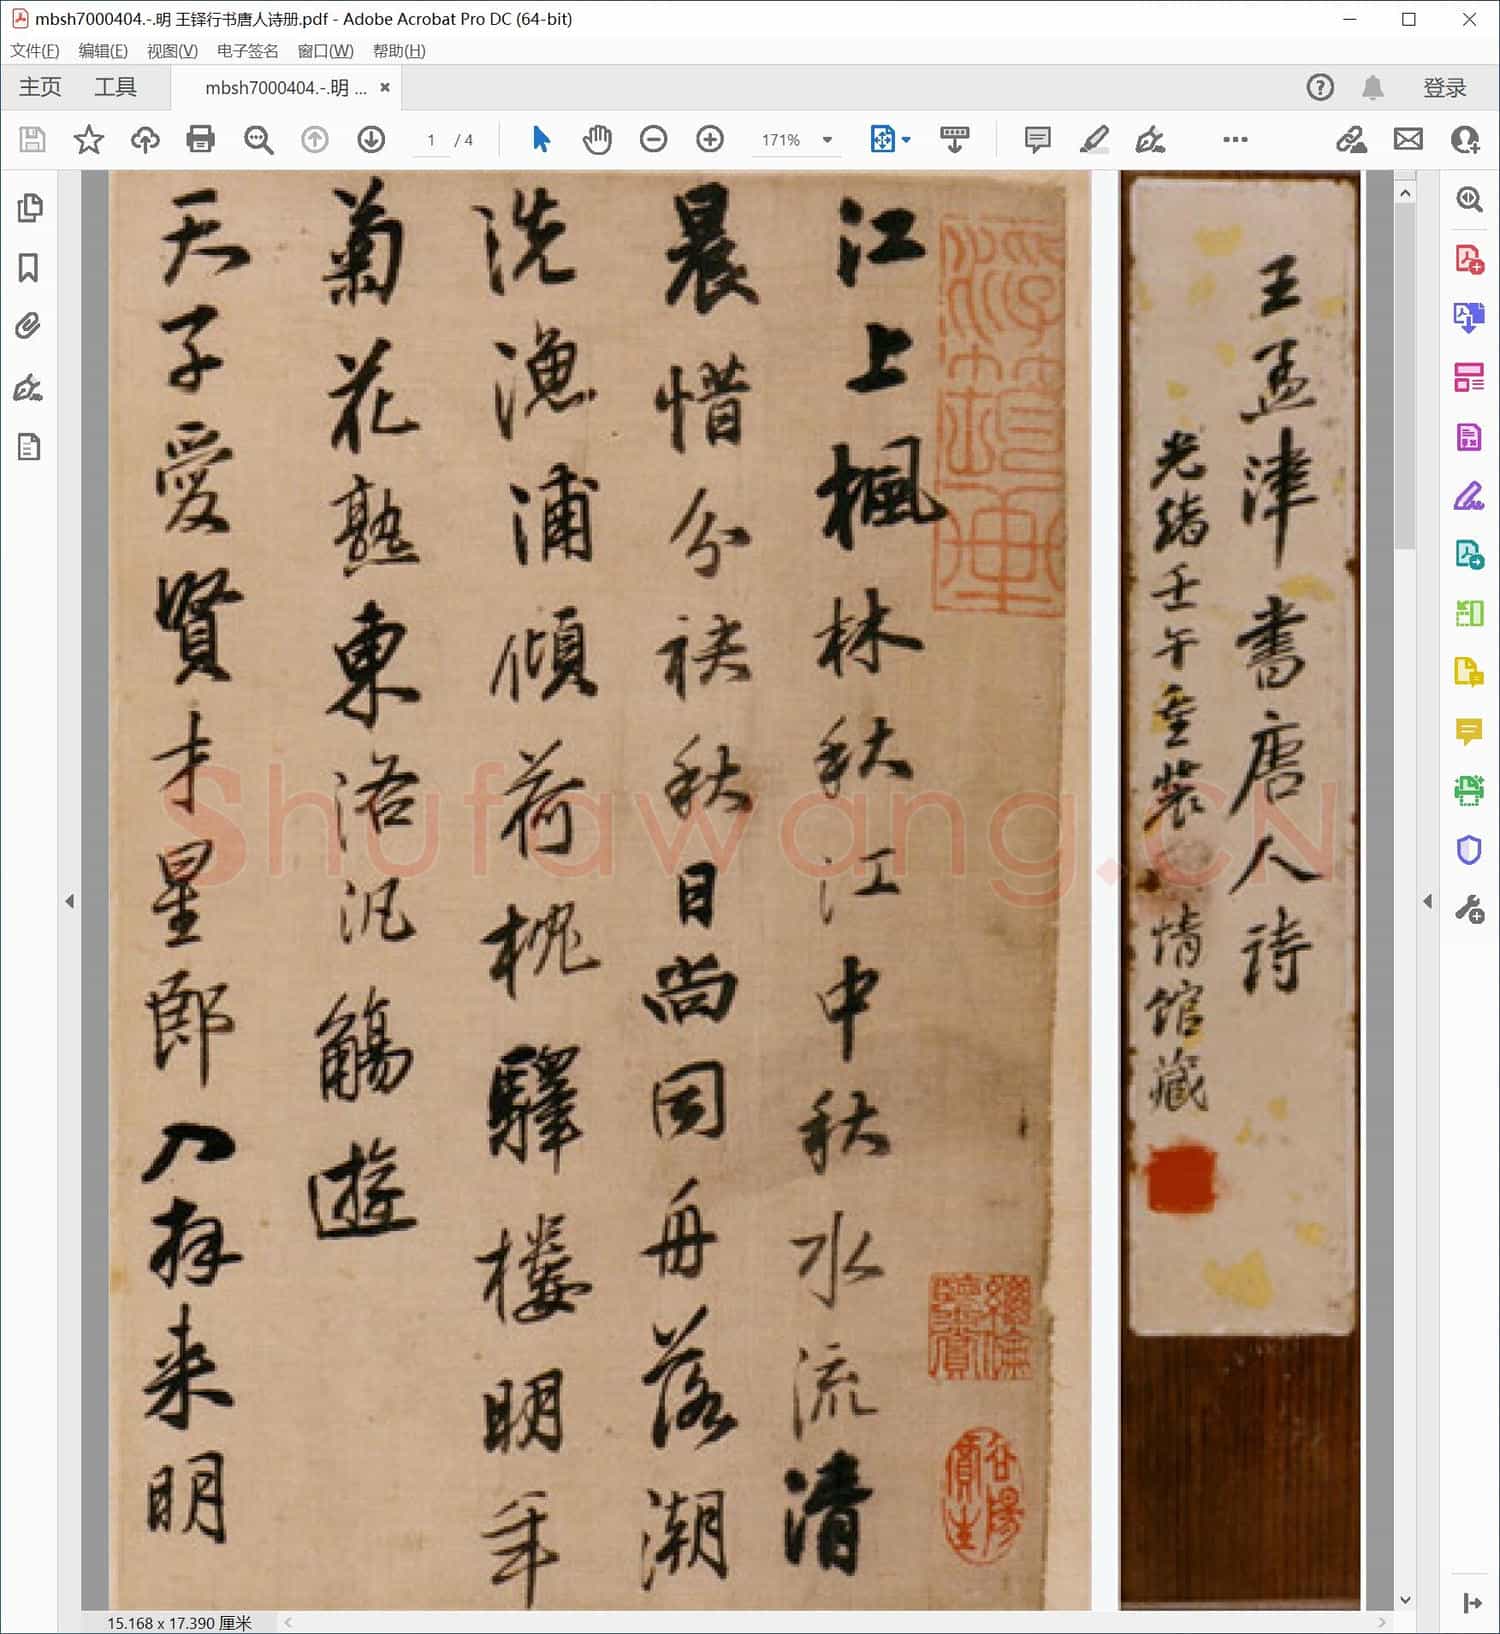 mbsh7000404.-.明 王铎行书唐人诗册.pdf - Adobe Acrobat Pro DC (64-bit)
文件(F) 编辑(E) 视图(V) 电子签名 窗口(W) 帮助(H)
主页 工具 mbsh7000404.-.明 ... × 登录
1 / 4 171%
王孟津書唐人诗
光緒壬午重装 情馆藏
江上楓林秋江中秋水流清
晨惜分袂秋日尚同舟落潮
洗漁浦傾荷枕驛楼明年
菊花熟東洛汎觴遊
天子愛賢才星郎入拜来明
Shufawang.CN
15.168 x 17.390 厘米